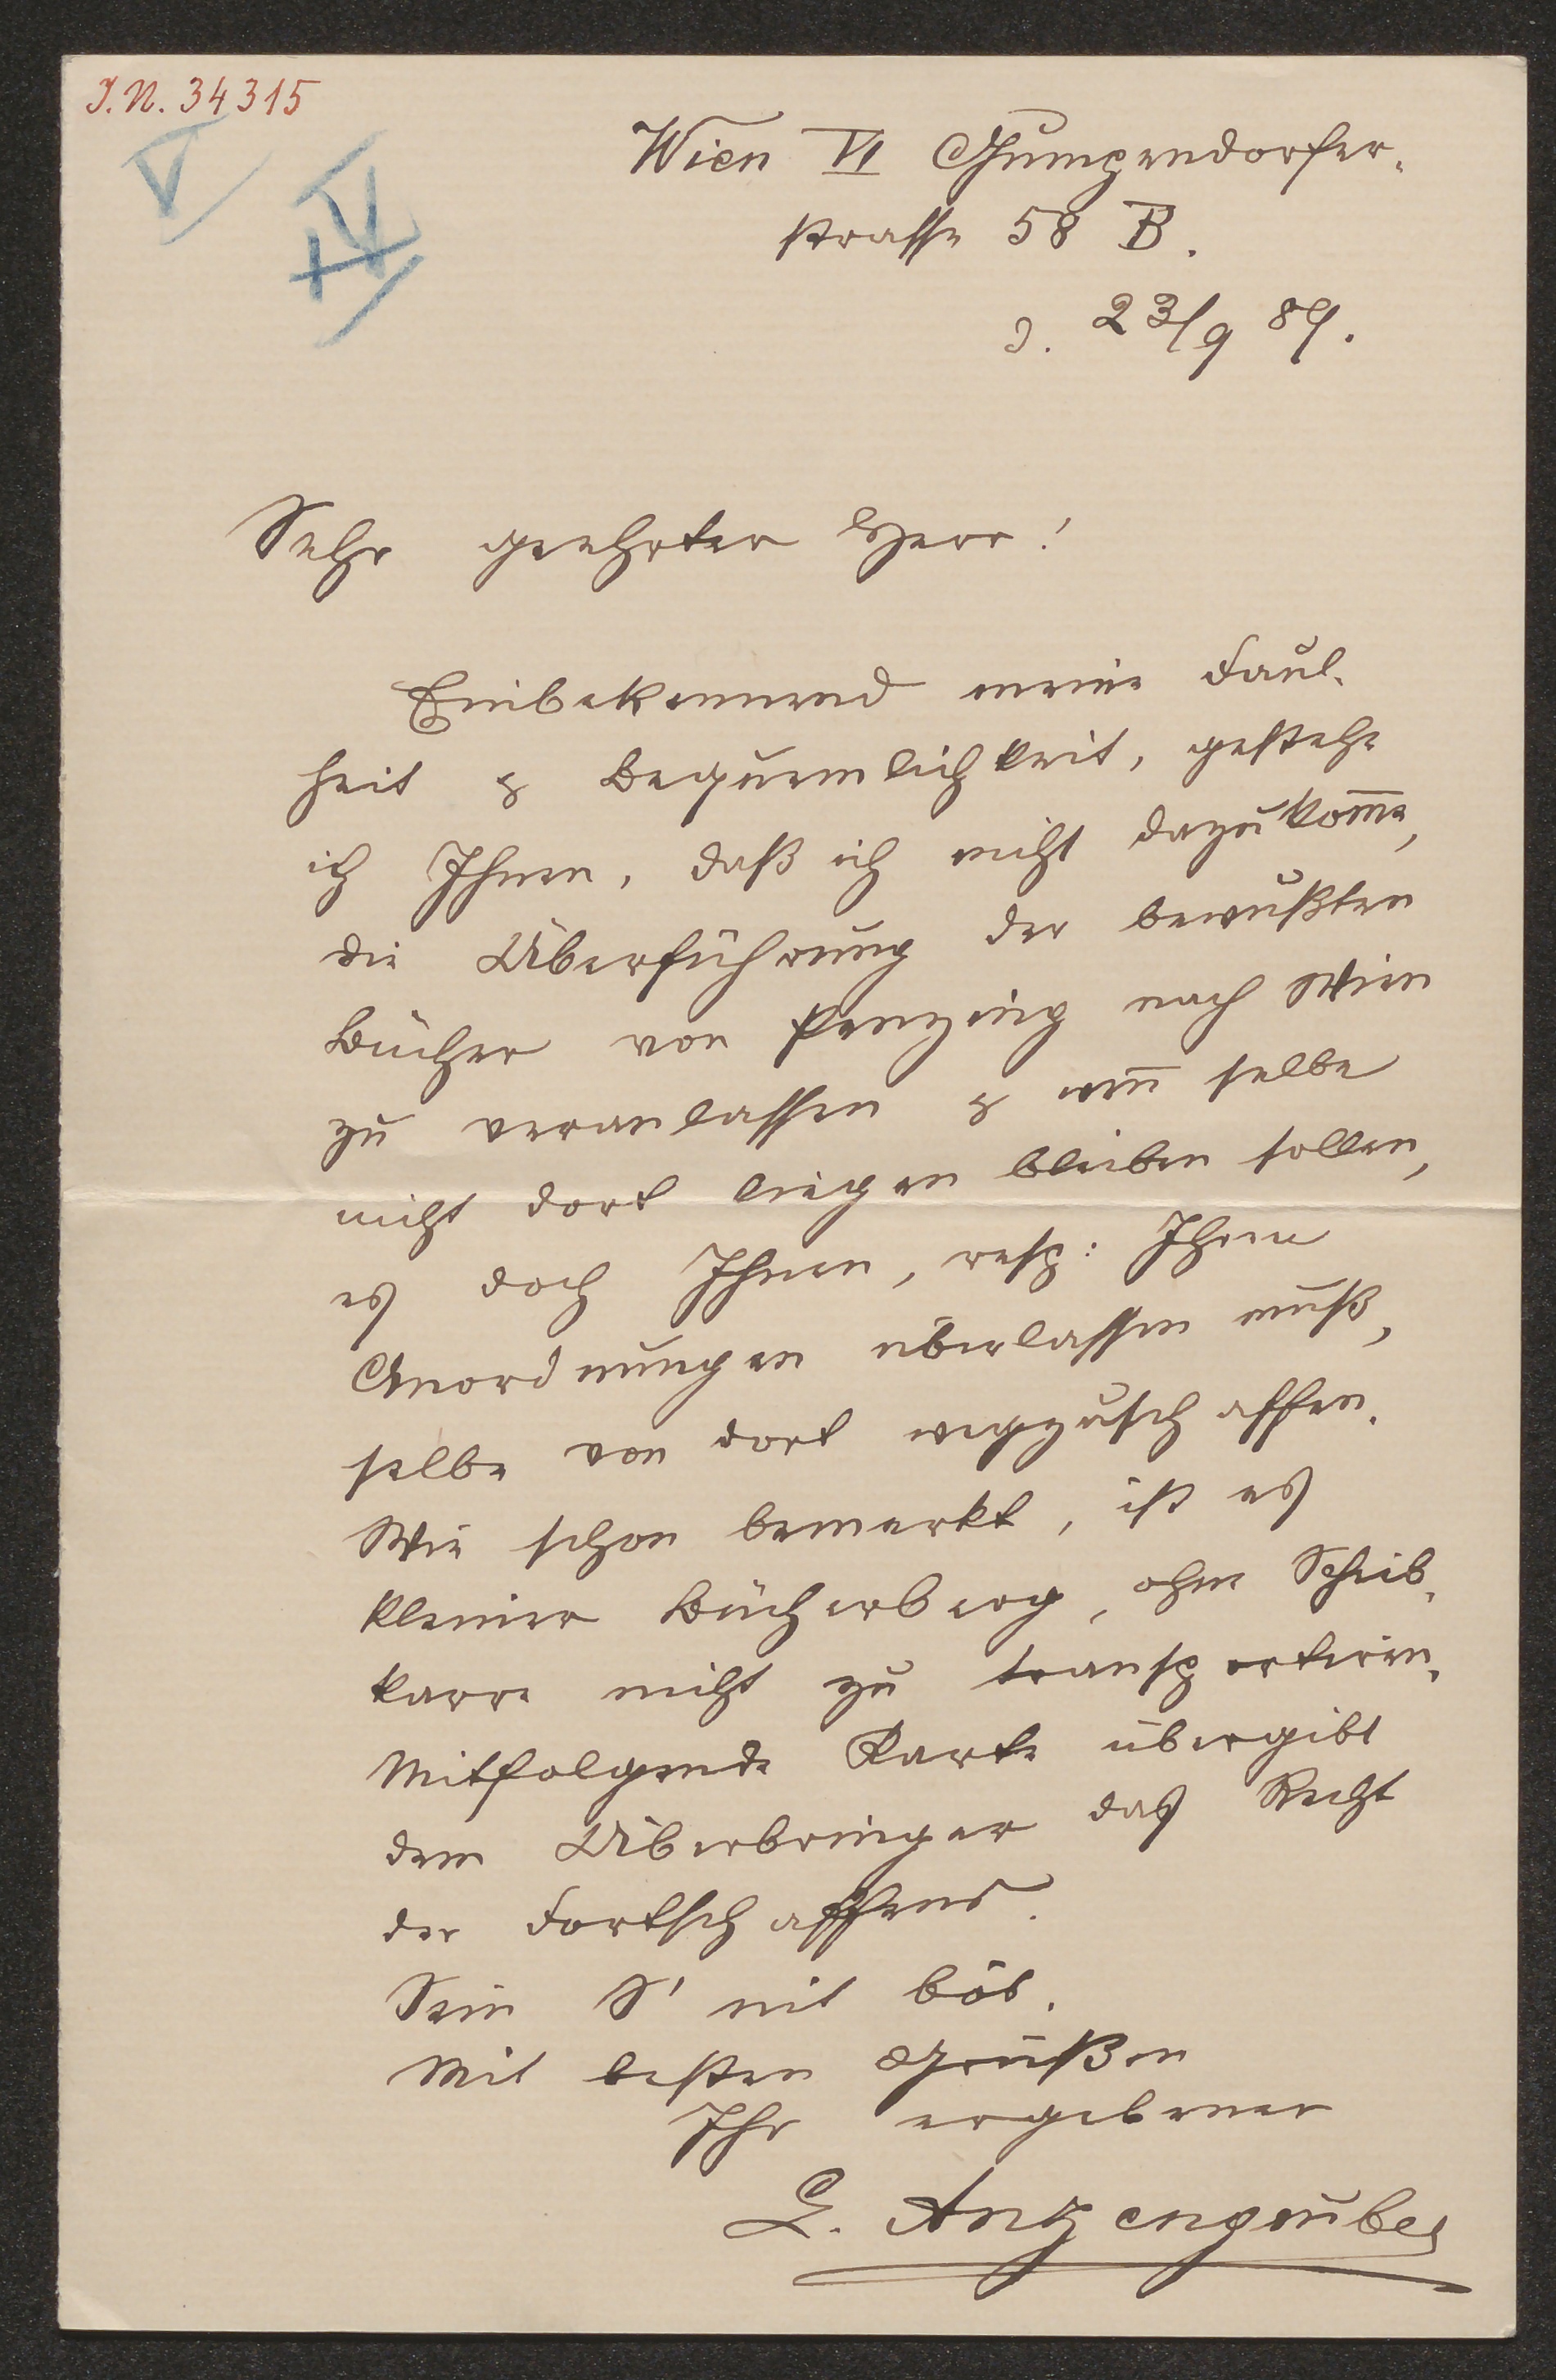 I.N. 34315
V
XV
Wien VI Gumpendorfer-
strasse 58 B.
d. 23/9 87.
Sehr geehrter Herr!
Einbekennend meine Faul-
heit & Bequemlichkeit, gestehe
ich Ihnen, daß ich nicht dazukom̅e,
die Überführung der bewußten
Bücher von Penzing nach Wien
zu veranlassen & wen̅ selbe
nicht dort liegen bleiben sollen,
es doch Ihnen, resp: Ihren
Anordnungen überlassen muß,
selbe von dort wegzuschaffen.
Wie schon bemerkt, ist es
kleiner Bücherberg, ohne Scheib-
karre nicht zu transportiren.
Mitfolgende Karte übergibt
dem Überbringer das Recht
der Fortschaffens.
Sein S' nit bös.
Mit besten Grüßen
Ihr ergebener
L. Anzengruber